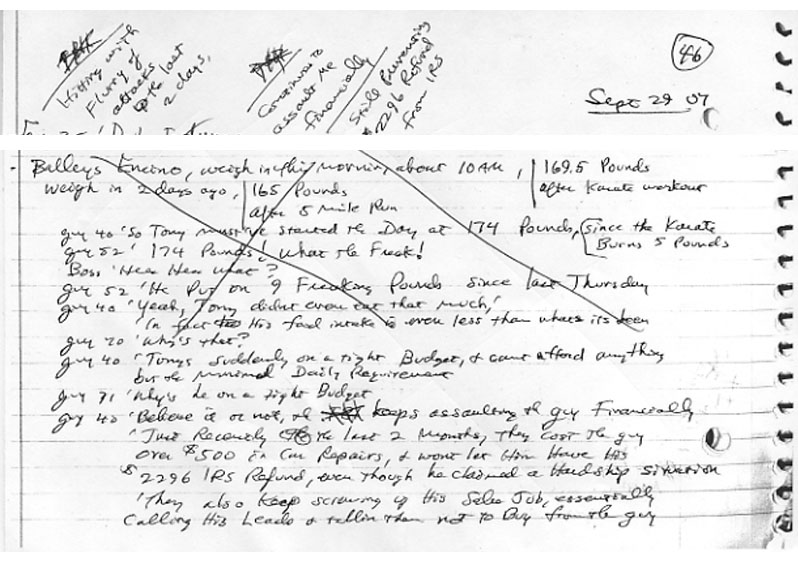 Hitting with
Flurry of
attacks
the last
2 days.
Continues to
assault me
financially
Still Preventing
$2296 Refund
from IRS
46
Sept 29 07
· Balleys Encino, weigh in this morning about 10 AM, 169.5 Pounds
after Karate workout
weigh in 2 days ago, 165 Pounds
after 5 mile Run
guy 40 'So Tony must've started the Day at 174 Pounds, since the Karate
Burns 5 Pounds
guy 52 ' 174 Pounds! What the Freak!
Boss 'Hear Hear what?
guy 52 'He Put on 9 Freaking Pounds since last Thursday
guy 40 'Yeah, Tony didnt even eat that much,'
'In fact His food intake is even less than whats its been
guy 20 'Why's that?
guy 40 'Tonys suddenly on a tight Budget, & cant afford anything
but the minimal Daily Requirement
guy 71 'Why's he on a tight Budget
guy 40 'Believe it or not, the keeps assaulting the guy Financially
'Just Recently the last 2 months, they cost the guy
over $500 in Car Repairs, & wont let Him Have His
$2296 IRS Refund, even though he claimed a Hardship situation
'They also keep screwing up His Sales Job, essentially
Calling His Leads & tellin them not to Buy from the guy